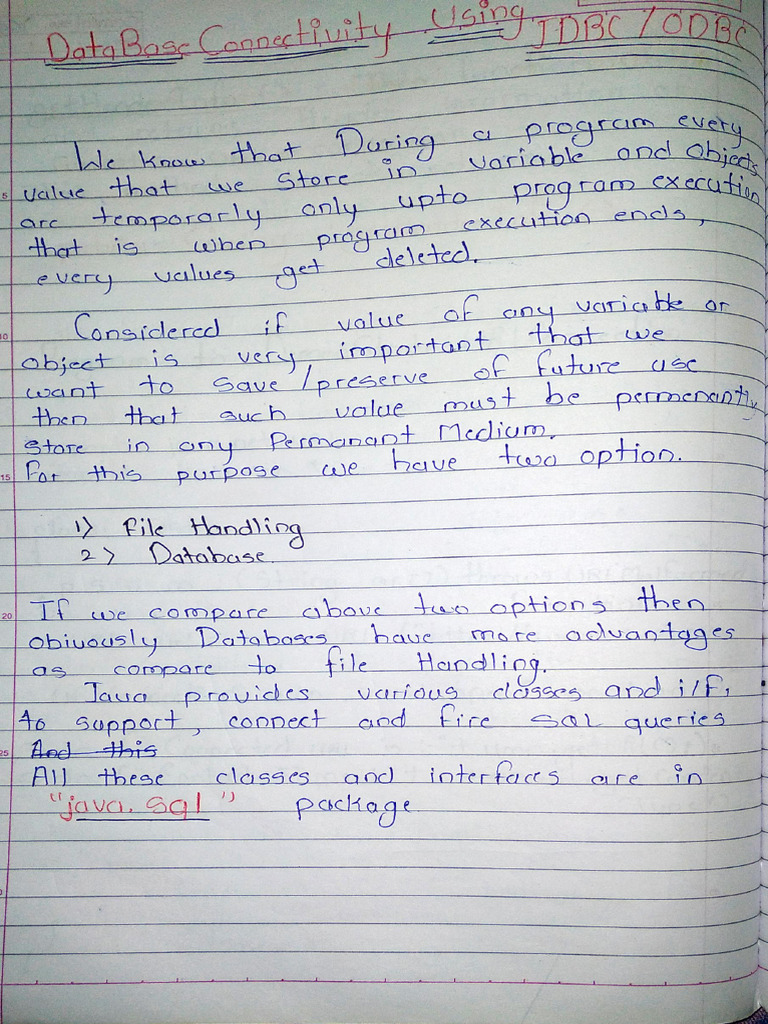 DataBase Connectivity Using JDBC / ODBC
We know that During a program every
value that we store in variable and objects
are temporarly only upto program execution
that is when program execution ends,
every values get deleted.
Considered if value of any variable or
object is very important that we
want to save / preserve of future use
then that such value must be permenantly
store in any Permanant Medium.
For this purpose we have two option.
1) File Handling
2) Database.
If we compare above two options then
obiuously Databases have more advantages
as compare to file Handling.
Java provides various classes and i/f,
to support, connect and fire SQL queries
And this
All these classes and interfaces are in
"java.sql" package
5
10
15
20
25